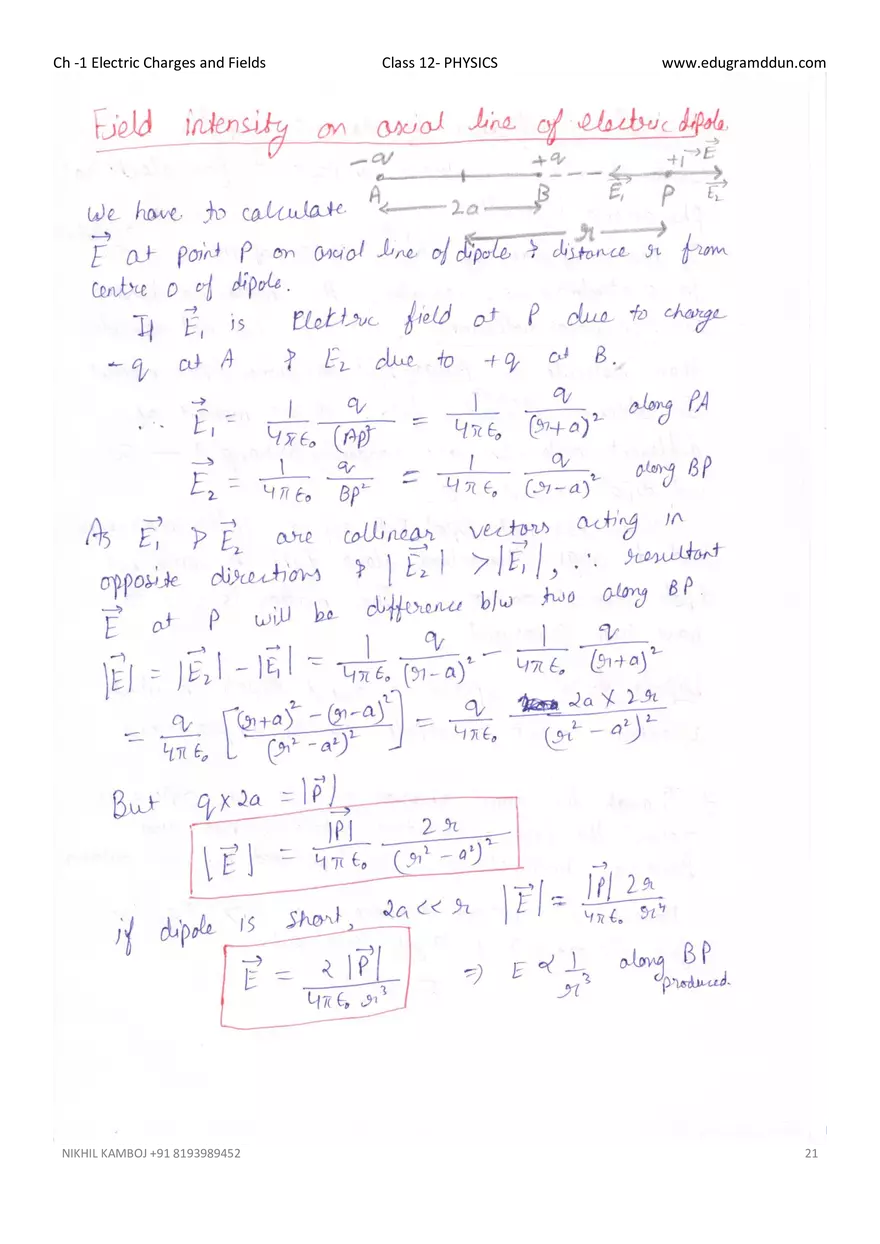 Ch -1 Electric Charges and Fields Class 12- PHYSICS www.edugramddun.com
Field intensity on axial line of electric dipole
-q +q +1 →E⃗
A B E⃗₁ P E⃗₂
2a
r
We have to calculate
E⃗ at point P on axial line of dipole & distance r from
centre O of dipole.
If E⃗₁ is Elektric field at P due to charge
-q at A & E₂ due to +q at B.
∴ E⃗₁ = 1/4πε₀ q/(AP)² = 1/4πε₀ q/(r+a)² along PA
E⃗₂ = 1/4πε₀ q/BP² = 1/4πε₀ q/(r-a)² along BP
As E⃗₁ & E⃗₂ are collinear vectors acting in
opposite directions & |E⃗₂| > |E⃗₁|, ∴ resultant
E⃗ at P will be difference b/w two along BP.
|E⃗| = |E⃗₂| - |E⃗₁| = 1/4πε₀ q/(r-a)² - 1/4πε₀ q/(r+a)²
= q/4πε₀ [(r+a)² - (r-a)²/(r² - a²)²] = q/4πε₀ 2a × 2r/(r² - a²)²
But q × 2a = |P⃗|
|E⃗| = |P⃗|/4πε₀ 2r/(r² - a²)²
if dipole is short, 2a << r |E⃗| = |P⃗| 2r/4πε₀ r⁴
E⃗ = 2|P⃗|/4πε₀ r³ ⇒ E ∝ 1/r³ along BP
produced.
NIKHIL KAMBOJ +91 8193989452 21